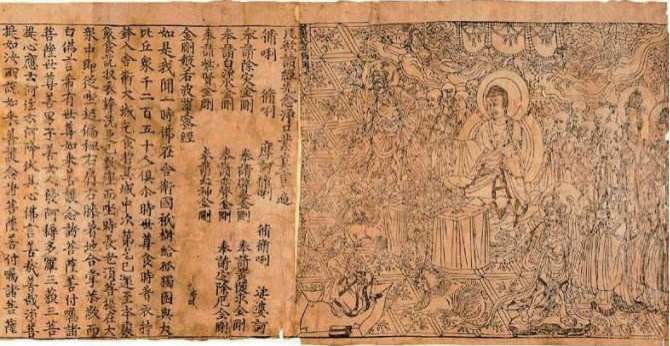 凡欲讀經先念淨口業真言一遍
脩唎 脩唎 摩訶脩唎 脩脩唎 娑婆訶
奉請除災金剛 奉請辟毒金剛 奉請黃隨求金剛
奉請白淨水金剛 奉請赤聲金剛 奉請定除厄金剛
奉請紫賢金剛 奉請大神金剛
金剛般若波羅蜜經
如是我聞一時佛在舍衛國祇樹給孤獨園與大
比丘眾千二百五十人俱尒時世尊食時著衣持
鉢入舍衛大城乞食於其城中次第乞已還至本處
飯食訖收衣鉢洗足已敷座而坐時長老須菩提在大
眾中即從座起偏袒右肩右膝著地合掌恭敬而
白佛言希有世尊如來善護念諸菩薩善付囑諸
菩薩世尊善男子善女人發阿耨多羅三藐三菩
提心應云何住云何降伏其心佛言善哉善哉須菩
提如汝所說如來善護念諸菩薩善付囑諸菩薩